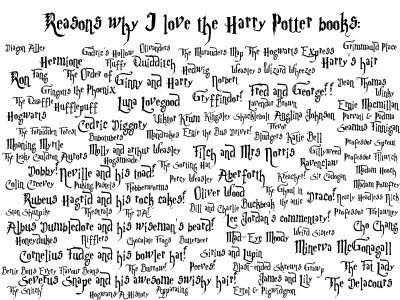 Reasons why I love the Harry Potter books:
Diagon Alley Godric's Hollow Ollivanders The Marauders Map The Hogwarts Express Grimmauld Place
Hermione Fluffy Quidditch Hedwig Weasley's Wizard Wheezes Harry's hair
Ron Fang The Order of Ginny and Harry Norbert Fred and George!! Dean Thomas
Gringotts the Phoenix Luna Lovegood Gryffindor! Winky
The Quaffle Hufflepuff Lavender Brown Ernie Macmillan
Hogwarts Cedric Diggory Viktor Krum Kingsley Shacklebolt Angelina Johnson Parvati & Padma
The Forbidden Forest Bubotubers Mandrakes Ernie the Bus Driver! Trevor Bludgers Katie Bell Seamus Finnigan
Moaning Myrtle Molly and arthur Weasley Professor Sprout
The Leaky Cauldron Aurors Hogsmeade Filch and Mrs Norris Gillyweed Professor Flitwick
Dobby! Neville and his toad! The Sorting Hat Ravenclaw Madam Hooch
Colin Creevey Puking Pastels Percy Weasley Aberforth Kreacher! Sir Cadogan Madam Pomfrey
Rubeus Hagrid and his rock cakes! Flobberworms Oliver Wood The Ghoul in the Attic Draco! Nearly Headless Nick
Stan Shunpike Thestrals The D.A! Bill and Charlie Buckbeak Professor Trelawney
Albus Dumbledore and his wiseman's beard! Lee Jordan's commentary! Cho Chang
Honeydukes Nifflers Chocolate Frogs Butterbeer Mad-Eye Moody Weird Sisters Minerva McGonagall
Cornelius Fudge and his bowler hat! Sirius and Lupin
Bertie Botts Every Flavour Beans The Burrow! Peeves! Blast-ended Skrewts Grawp The Fat Lady
Severus Snape and his awesome swishy hair! James and Lily The Delacours
The Snitch Hogwarts A History Apparating Errol & Pigwidgeon